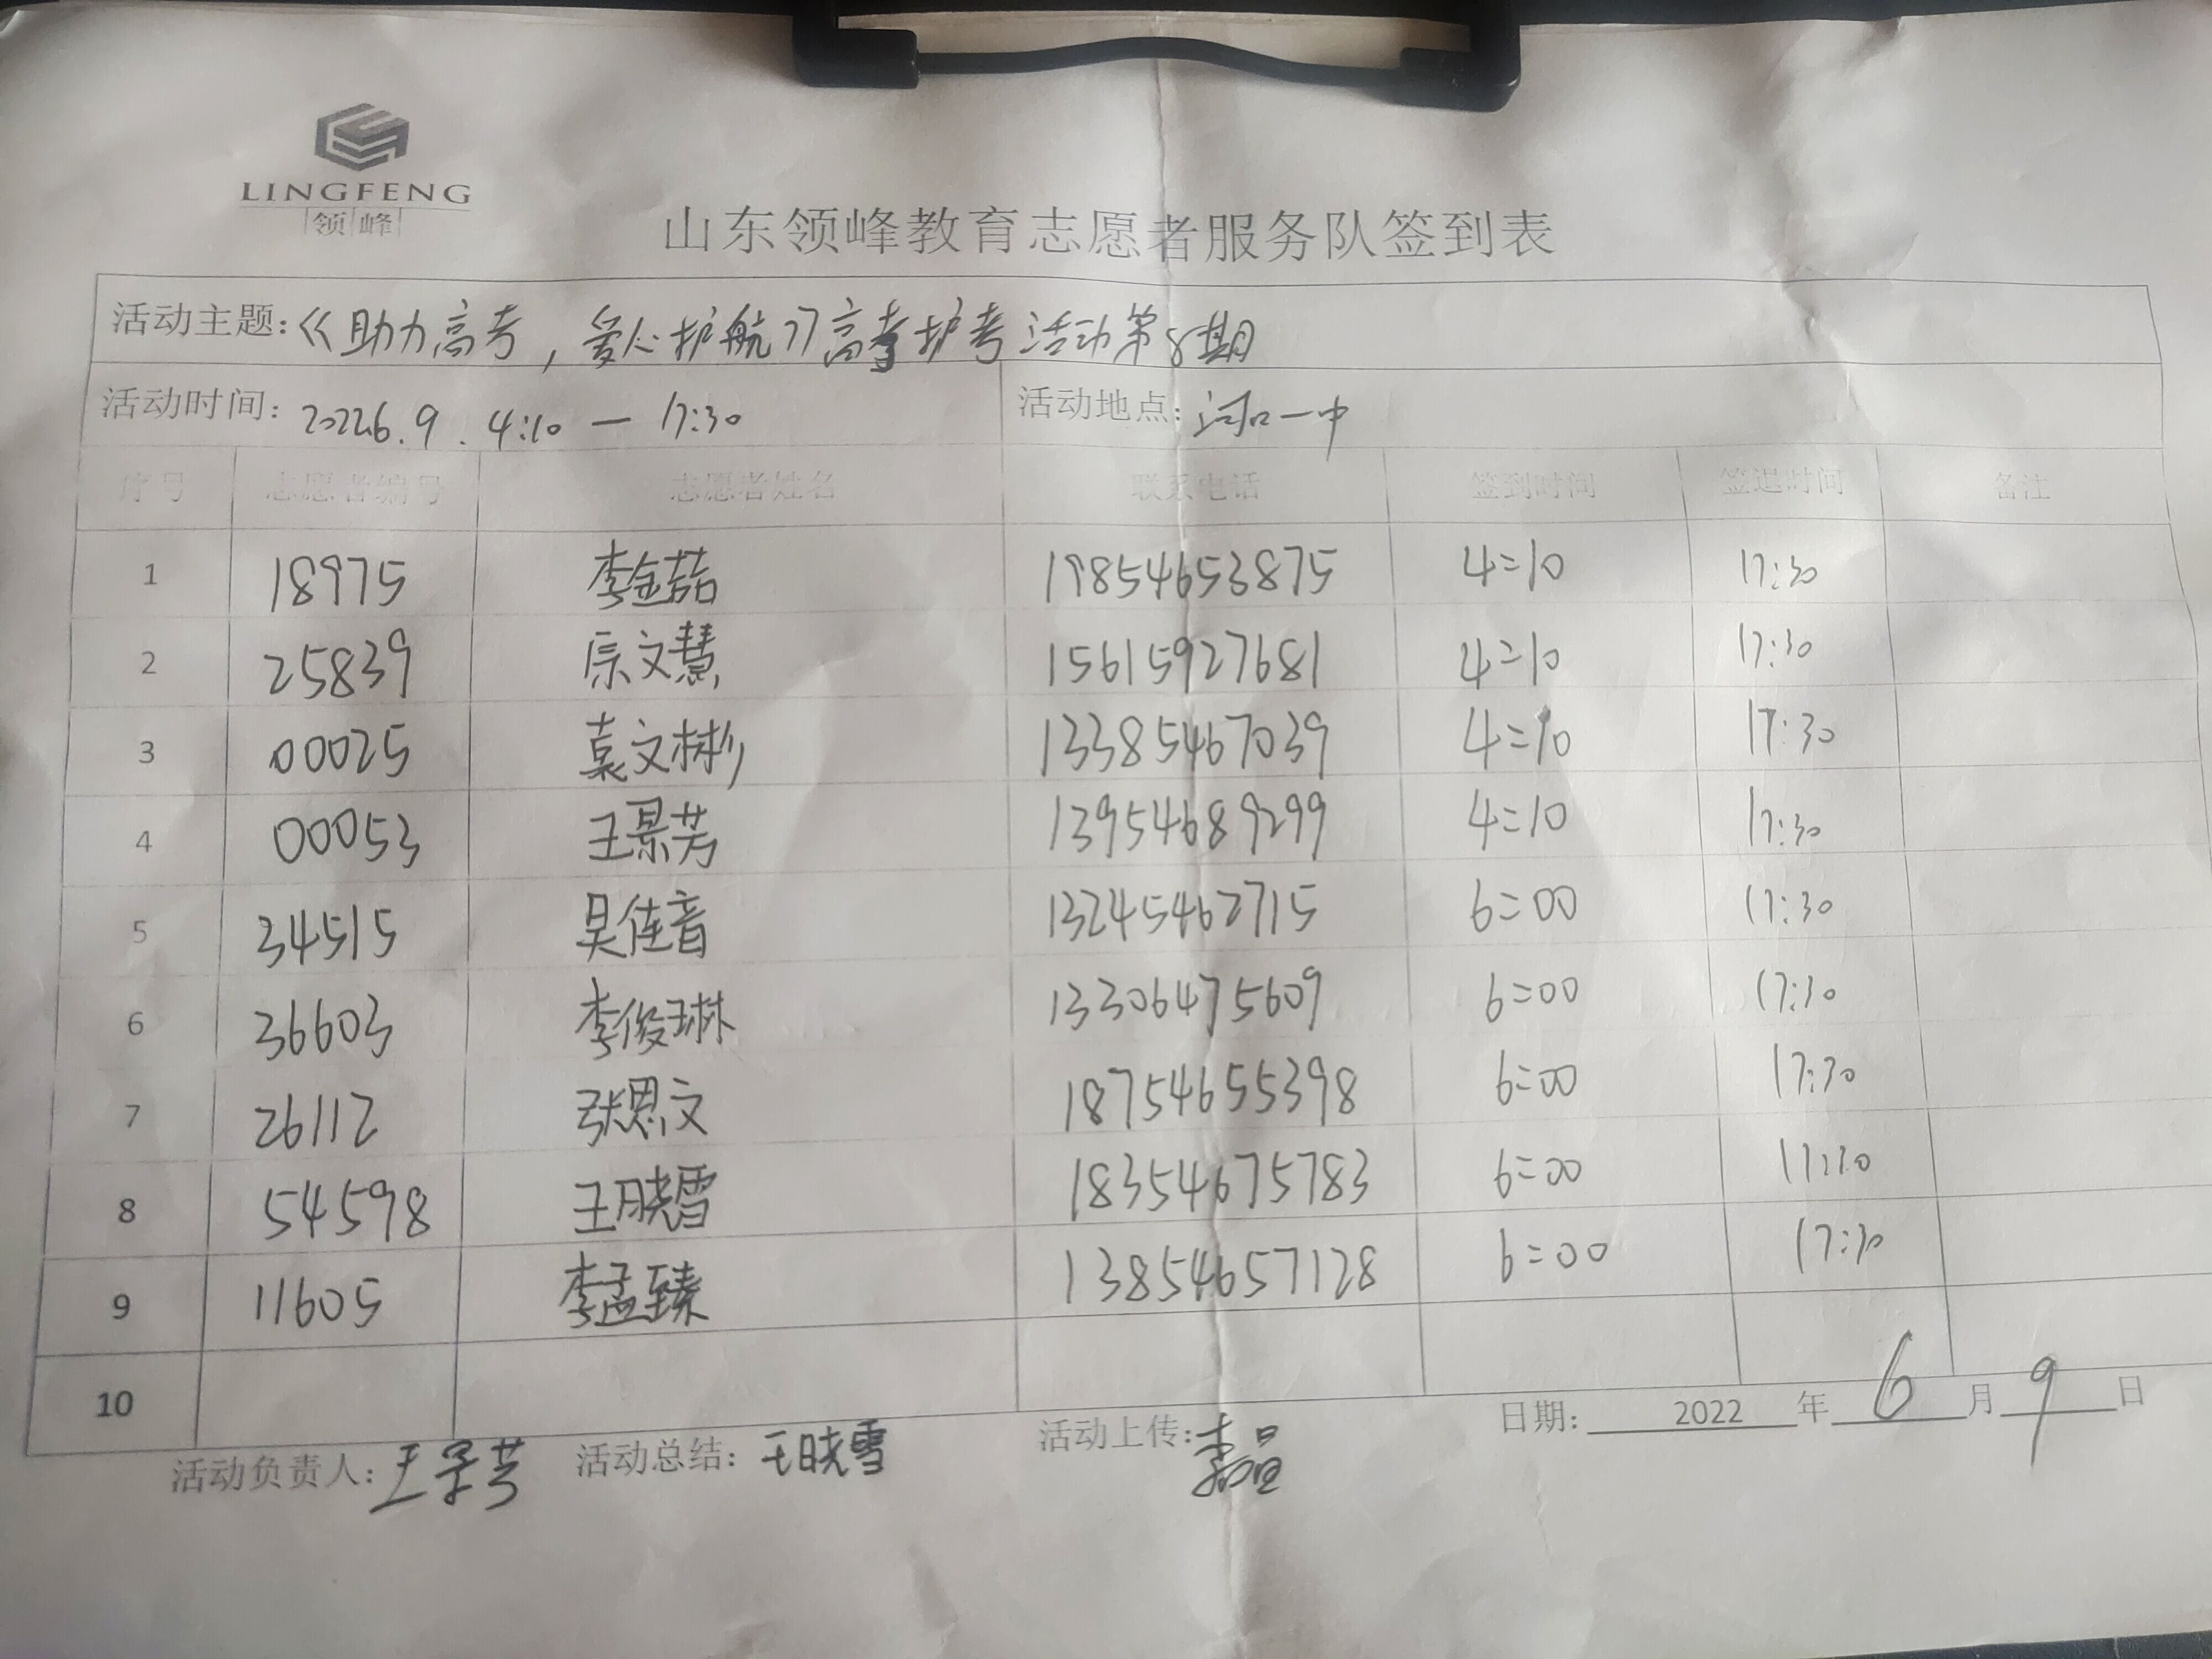 LINGFENG
领峰
山东领峰教育志愿者服务队签到表
活动主题:《助力高考,爱心护航》高考护考活动第8期
活动时间: 2022.6.9. 4:10 — 17:30 活动地点: 河口一中
序号 志愿者编号 志愿者姓名 联系电话 签到时间 签退时间 备注
1 18975 李金喆 19854653875 4:10 17:30
2 25839 宗文慧 15615927681 4:10 17:30
3 00025 袁文彬 13385467039 4:10 17:30
4 00053 王景芳 13954689299 4:10 17:30
5 34515 吴佳音 13245462715 6:00 17:30
6 36603 李俊琳 13306475609 6:00 17:30
7 26112 张恩文 18754655398 6:00 17:30
8 54598 王晓雪 18354675783 6:00 17:30
9 11605 李孟臻 13854657128 6:00 17:30
10
活动负责人: 王景芳 活动总结: 王晓雪 活动上传: 日期: 2022 年 6 月 9 日